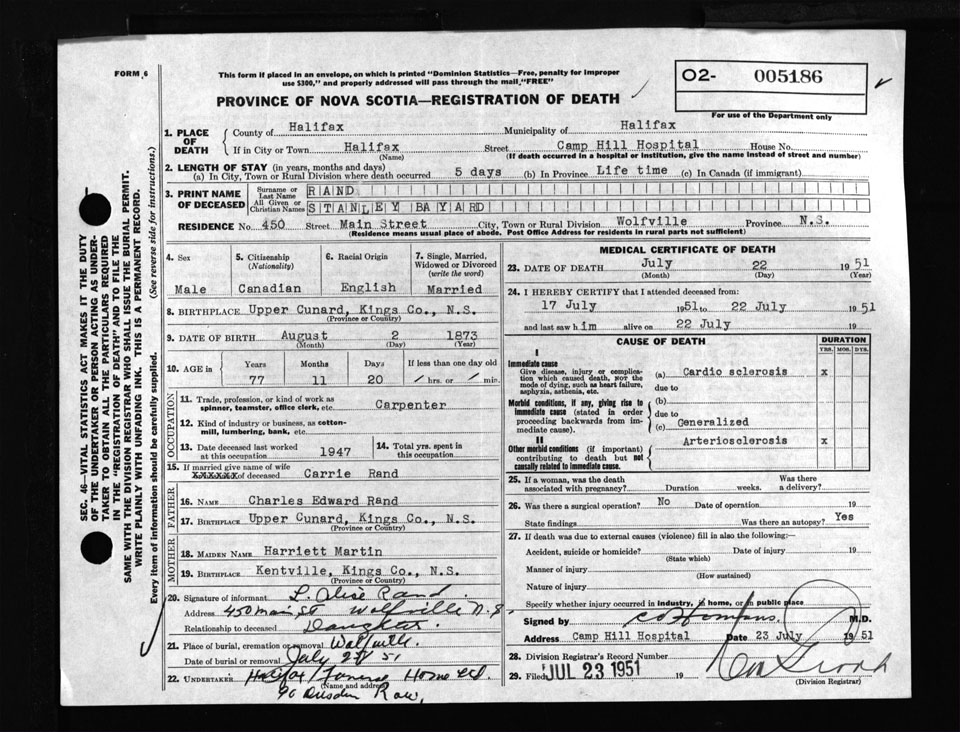 FORM 6
This form if placed in an envelope, on which is printed "Dominion Statistics—Free, penalty for improper
use $300," and properly addressed will pass through the mail "FREE"
PROVINCE OF NOVA SCOTIA—REGISTRATION OF DEATH
O2- 005186
For use of the Department only
SEC. 46—VITAL STATISTICS ACT MAKES IT THE DUTY
OF THE UNDERTAKER OR PERSON ACTING AS UNDER-
TAKER TO OBTAIN ALL THE PARTICULARS REQUIRED
IN THE "REGISTRATION OF DEATH" AND TO FILE THE
SAME WITH THE DIVISION REGISTRAR WHO SHALL ISSUE THE BURIAL PERMIT.
WRITE PLAINLY WITH UNFADING INK. THIS IS A PERMANENT RECORD.
Every item of information should be carefully supplied. (See reverse side for instructions.)
1. PLACE OF DEATH
County of Halifax Municipality of Halifax
If in City or Town Halifax Street Camp Hill Hospital House No.
(Name) (If death occurred in a hospital or institution, give the name instead of street and number)
2. LENGTH OF STAY (in years, months and days)
(a) In City, Town or Rural Division where death occurred 5 days (b) In Province Life time (c) In Canada (if immigrant)
3. PRINT NAME OF DECEASED
Surname or Last Name RAND
All Given or Christian Names STANLEY BAYARD
RESIDENCE No. 450 Street Main Street City, Town or Rural Division Wolfville Province N.S.
(Residence means usual place of abode. Post Office Address for residents in rural parts not sufficient)
4. Sex Male
5. Citizenship (Nationality) Canadian
6. Racial Origin English
7. Single, Married, Widowed or Divorced (write the word) Married
8. BIRTHPLACE Upper Cunard, Kings Co., N.S.
(Province or Country)
9. DATE OF BIRTH August 2 1873
(Month) (Day) (Year)
10. AGE in Years Months Days If less than one day old
77 11 20 / hrs. or / min.
OCCUPATION
11. Trade, profession, or kind of work as spinner, teamster, office clerk, etc. Carpenter
12. Kind of industry or business, as cotton-mill, lumbering, bank, etc.
13. Date deceased last worked at this occupation 1947
14. Total yrs. spent in this occupation
15. If married give name of wife XXXXXX of deceased Carrie Rand
FATHER
16. NAME Charles Edward Rand
17. BIRTHPLACE Upper Cunard, Kings Co., N.S.
(Province or Country)
MOTHER
18. MAIDEN NAME Harriett Martin
19. BIRTHPLACE Kentville, Kings Co., N.S.
(Province or Country)
20. Signature of informant L. Alise Rand
Address 450 Main St Wolfville N.S
Relationship to deceased Daughter.
21. Place of burial, cremation or removal Wolfville.
Date of burial or removal July 51
22. UNDERTAKER Halifax Funeral Home Ltd.
(Name and address)
90 Dresden Row,
MEDICAL CERTIFICATE OF DEATH
23. DATE OF DEATH July 22 1951
(Month) (Day) (Year)
24. I HEREBY CERTIFY that I attended deceased from:
17 July 1951 to 22 July 1951
and last saw him alive on 22 July 19
CAUSE OF DEATH DURATION
YRS. MOS. DYS.
I
Immediate cause
Give disease, injury or complication which caused death, NOT the mode of dying, such as heart failure, asphyxia, asthenia, etc.
(a) Cardio sclerosis x
due to
Morbid conditions, if any, giving rise to immediate cause (stated in order proceeding backwards from immediate cause).
(b)
due to
(c) Generalized
II
Other morbid conditions (if important) contributing to death but not causally related to immediate cause.
Arteriosclerosis x
25. If a woman, was the death associated with pregnancy? Duration weeks. Was there a delivery?
26. Was there a surgical operation? No Date of operation 19
State findings Was there an autopsy? Yes
27. If death was due to external causes (violence) fill in also the following:—
Accident, suicide or homicide? Date of injury 19
(State which)
Manner of injury
(How sustained)
Nature of injury
Specify whether injury occurred in industry, in home, or in public place
Signed by M.D.
Address Camp Hill Hospital Date 23 July 1951
28. Division Registrar's Record Number
29. Filed JUL 23 1951 19
(Division Registrar)